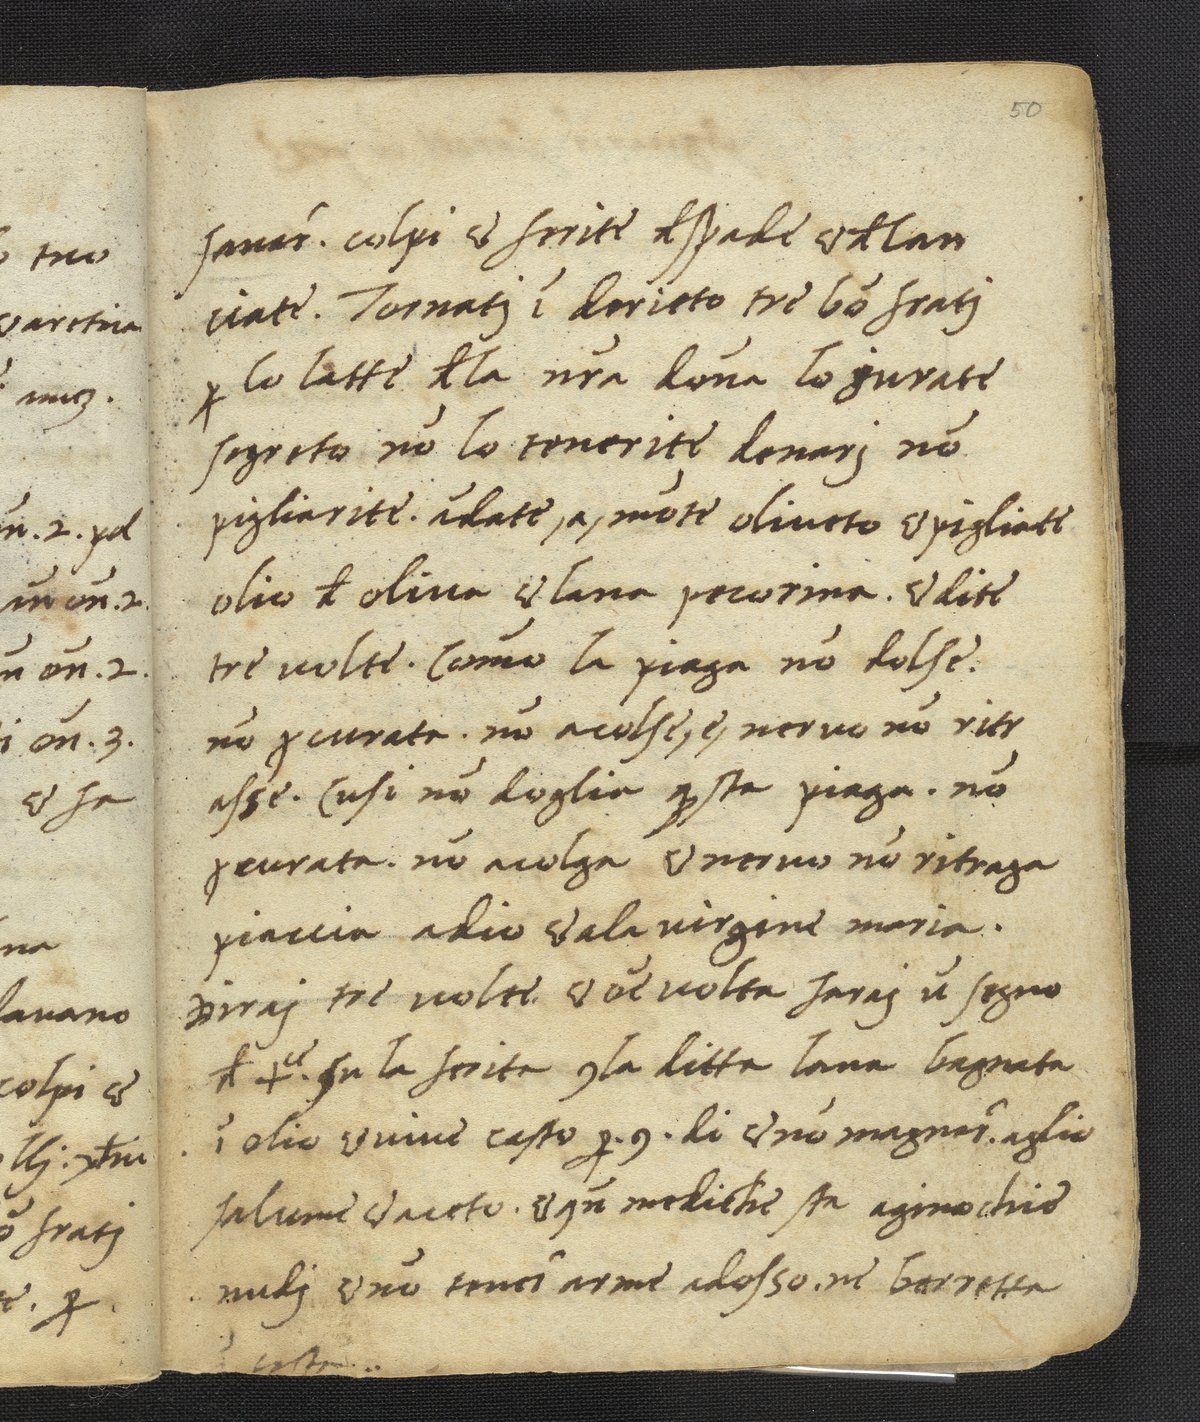 50
sanar̃. colpi & ferite đ spade & đ lan
ciate. Tornatj ĩ derieto tre bõ fratj
ꝑ lo latte đla nr̃a dõna lo giurate
segreto nõ lo tenerite denarj nõ
pigliarite. ãdate, a, mõte oliveto & pigliate
olio đ oliva & lana pecorina. & dite
tre volte. Comõ la piaga nõ dolse.
nõ ꝑcurata. nõ acolse, e, nervo nõ ritr
asse. Cusi nõ doglia q̃sta piaga. nõ
ꝑcurata. nõ acolga & nervo nõ ritraga
piaccia adio & ala virgine maria.
Diraj tre volte & õe volta faraj ũ segno
đ +ce. su la ferita ꝯ la ditta lana bagnata
ĩ olio & vive casto ꝑ. 9. di & nõ magnar̃. aglio
salume & aceto. & qñ mediche sta aginochiõ
nudj & nõ tener̃ arme adosso. ne barretta
ĩ testa..
tuo
colpi &
& fa
õn. 2.
õn. 2.
õn. 2.
õn. 3.
na
lavano
fratj
te. ꝑ.